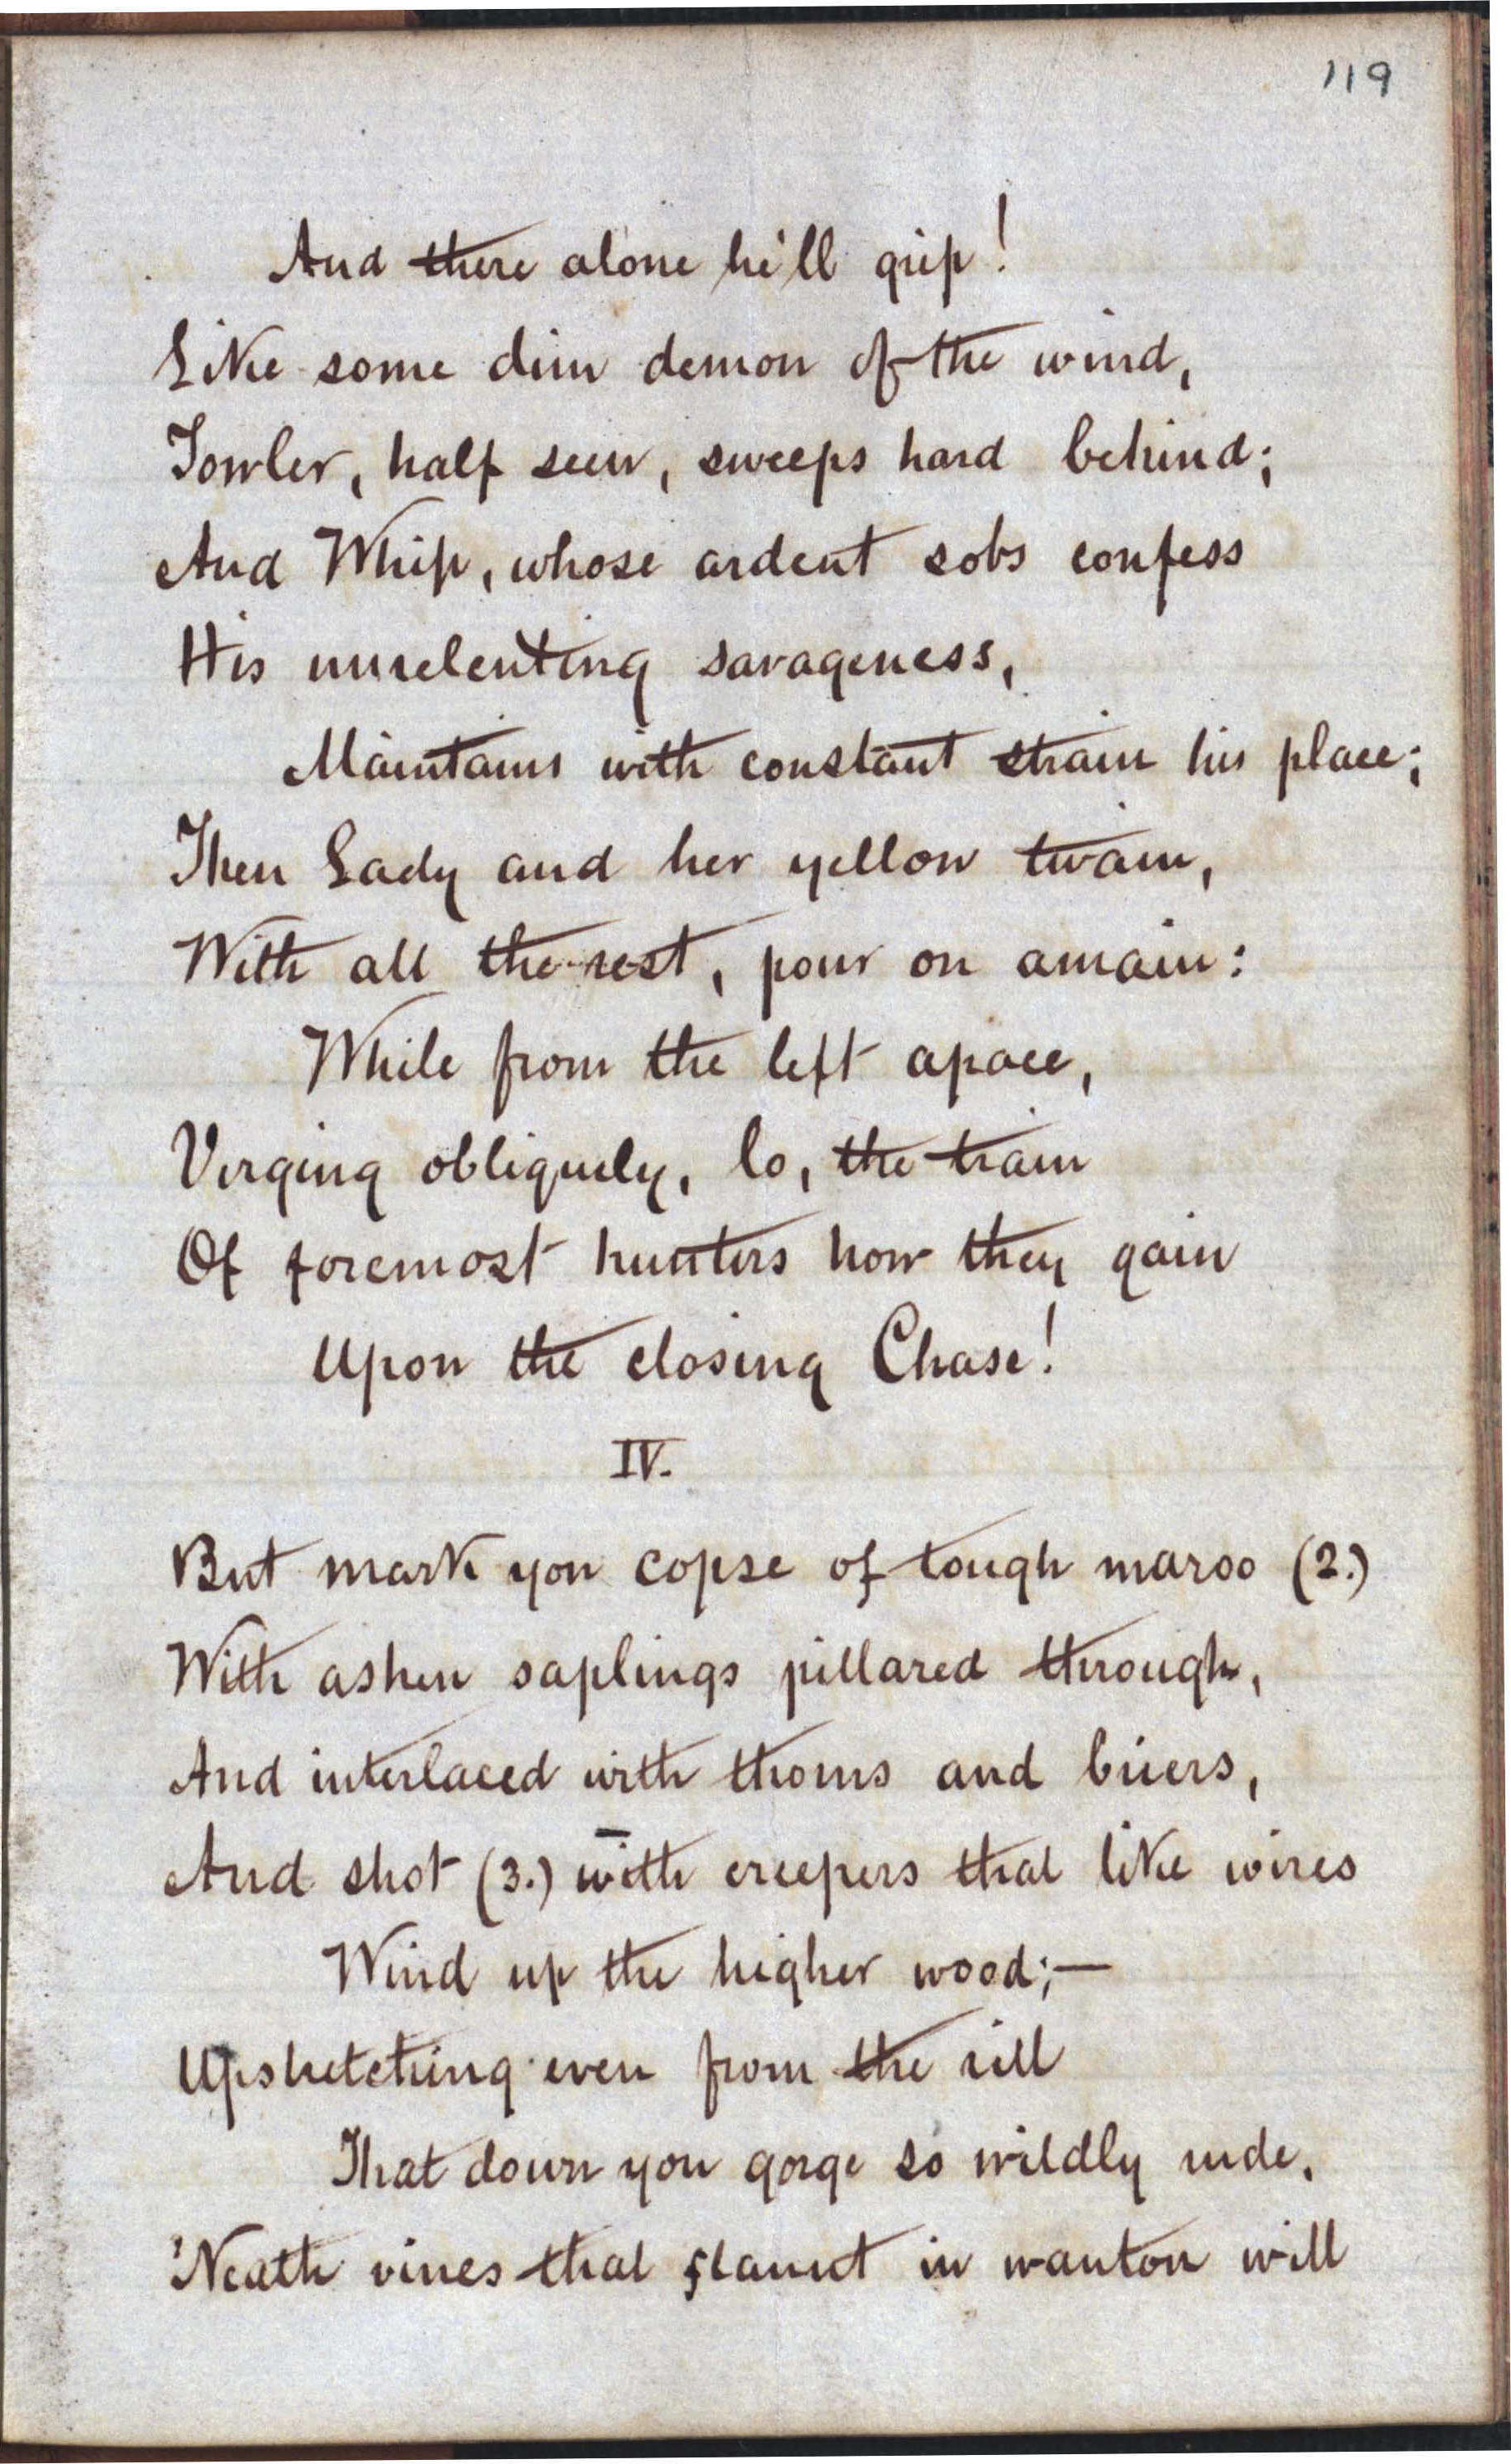 119
And there alone he'll grip!
Like some dim demon of the wind,
Towler, half seen, sweeps hard behind;
And Whip, whose ardent sobs confess
His unrelenting savageness,
Maintains with constant strain his place;
Then Lady and her yellow twain,
With all the rest, pour on amain:
While from the left apace,
Verging obliquely, lo, the train
Of foremost hunters how they gain
Upon the closing Chase!
IV.
But mark yon copse of tough maroo (2.)
With ashen saplings pillared through,
And interlaced with thorns and briers,
And shot (3.) with creepers that like wires
Wind up the higher wood;—
Upstretching even from the rill
That down yon gorge so wildly rude,
'Neath vines that flaunt in wanton will